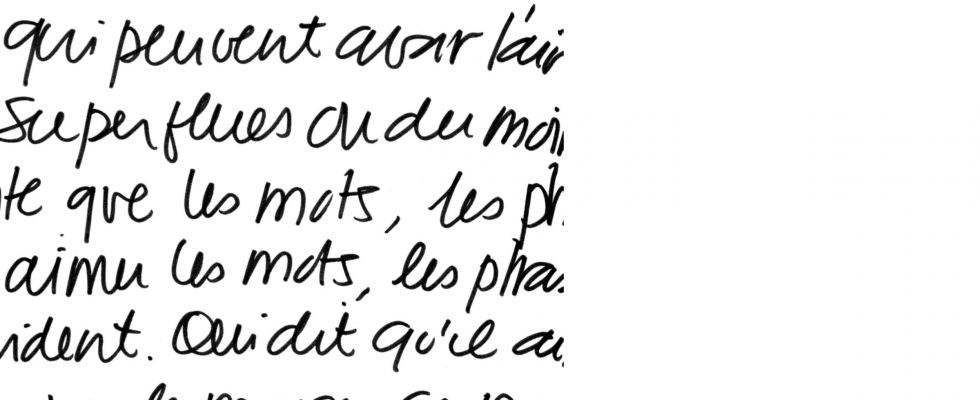 qui peuvent avoir l'air
superflues ou du moin
te que les mots, les ph
aimer les mots, les phras
ident. Qui dit qu'il au